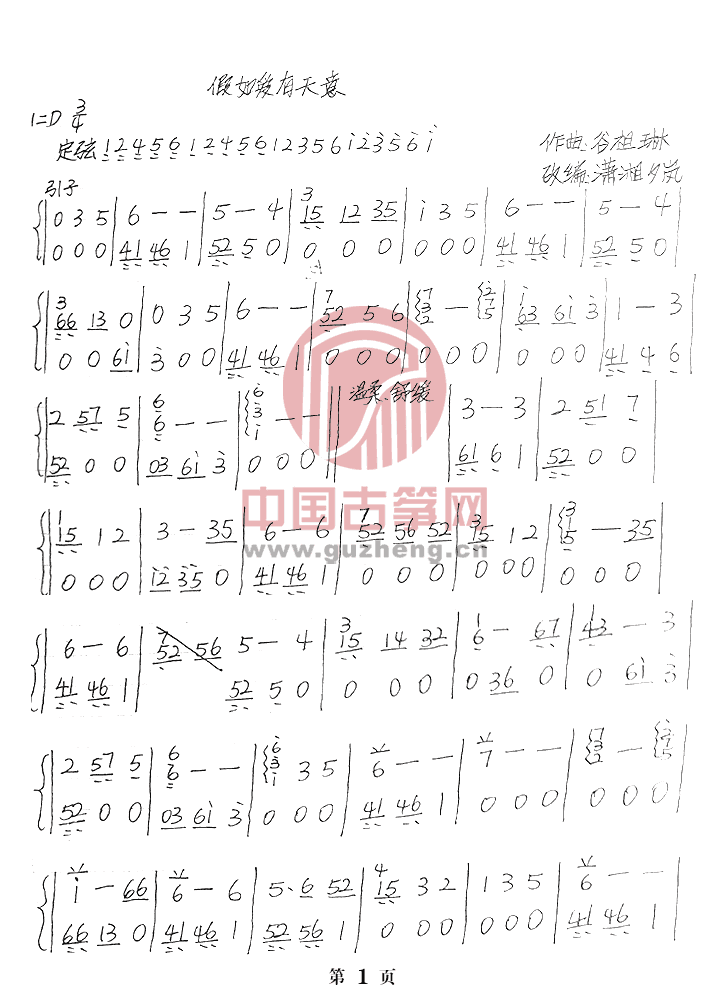 假如没有天意
1=D 3/4
定弦 1 2 4 5 6 1 2 4 5 6 1 2 3 5 6 i 2 3 5 6 i
作曲:谷祖琳
改编:潇湘夕岚
引子
0 3 5 | 6 – – | 5 – 4 | 3 15 12 35 | i 3 5 | 6 – – | 5 – 4
0 0 0 | 41 46 1 | 52 5 0 | 0 0 0 | 0 0 0 | 41 46 1 | 52 5 0
3 66 13 0 | 0 3 5 | 6 – – | 7 52 5 6 | 7 3 2 – 2 7 5 | i 63 6i 3 | 1 – 3
0 0 6i | 3 0 0 | 41 46 1 | 0 0 0 | 0 0 0 | 0 0 0 | 41 4 6
温柔、舒缓
2 57 5 | 6 6 – – | 6 3 i – – || 3 – 3 | 2 51 7
52 0 0 | 03 6i 3 | 0 0 0 || 61 6 1 | 52 0 0
中国古筝网
www.guzheng.cn
1 15 1 2 | 3 – 35 | 6 – 6 | 7 52 56 52 | 3 15 1 2 | 3 1 5 – 35
0 0 0 | i2 35 0 | 41 46 1 | 0 0 0 | 0 0 0 | 0 0 0
6 – 6 | 7 52 56 5 – 4 | 3 15 14 32 | 1 6 – 67 | 43 – 3
41 46 1 | 52 5 0 | 0 0 0 | 0 36 0 | 0 6i 3
2 57 5 | 6 6 – – | 6 3 i 3 5 | 6 – – | 7 – – | 7 3 2 – 2 7 5
52 0 0 | 03 6i 3 | 0 0 0 | 41 46 1 | 0 0 0 | 0 0 0
i – 66 | 6 – 6 | 5· 6 52 | 4 15 3 2 | 1 3 5 | 6 – –
66 13 0 | 41 46 1 | 52 56 1 | 0 0 0 | 0 0 0 | 41 46 1
第 1 页